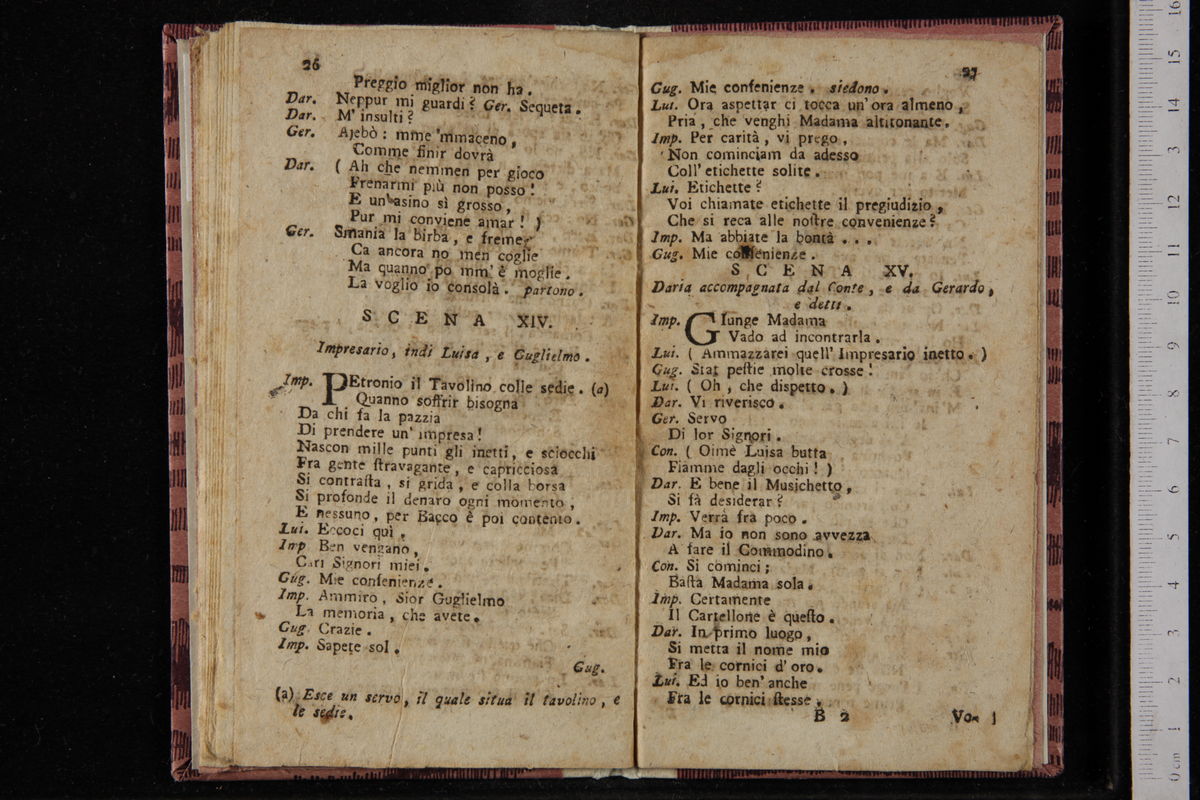 26
Preggio miglior non ha.
Dar. Neppur mi guardi? Ger. Sequeta.
Dar. M' insulti?
Ger. Ajebò: mme 'mmaceno,
Comme finir dovrà
Dar. ( Ah che nemmen per gioco
Frenarmi più non posso!
E un asino sì grosso,
Pur mi conviene amar! )
Ger. Smania la birba, e freme
Ca ancora no men coglie
Ma quanno po mm' è moglie.
La voglio io consolà. partono.
SCENA XIV.
Impresario, indi Luisa, e Guglielmo.
Imp. PEtronio il Tavolino colle sedie. (a)
Quanno soffrir bisogna
Da chi fa la pazzia
Di prendere un' impresa!
Nascon mille punti gli inetti, e sciocchi
Fra gente ſtravagante, e capricciosa
Si contraſta, si grida, e colla borsa
Si profonde il denaro ogni momento,
E nessuno, per Bacco è poi contento.
Lui. Eccoci qui,
Imp Ben vengano,
Cari Signori miei.
Gug. Mie confenienze.
Imp. Ammiro, Sior Guglielmo
La memoria, che avete.
Gug. Crazie.
Imp. Sapete sol.
Gug.
(a) Esce un servo, il quale situa il tavolino, e
le sedie.
27
Gug. Mie confenienze. siedono.
Lui. Ora aspettar ci tocca un' ora almeno,
Pria, che venghi Madama altitonante.
Imp. Per carità, vi prego,
Non cominciam da adesso
Coll' etichette solite.
Lui. Etichette?
Voi chiamate etichette il pregiudizio,
Che si reca alle noſtre convenienze?
Imp. Ma abbiate la bontà...
Gug. Mie confenienze.
SCENA XV.
Daria accompagnata dal Conte, e da Gerardo,
e detti.
Imp. GIunge Madama
Vado ad incontrarla.
Lui. ( Ammazzarei quell' Impresario inetto. )
Gug. Stat peſtie molte crosse!
Lui. ( Oh, che dispetto. )
Dar. Vi riverisco.
Ger. Servo
Di lor Signori.
Con. ( Oimè Luisa butta
Fiamme dagli occhi! )
Dar. E bene il Musichetto,
Si fà desiderar?
Imp. Verrà fra poco.
Dar. Ma io non sono avvezza
A fare il Commodino.
Con. Si cominci;
Baſta Madama sola.
Imp. Certamente
Il Cartellone è queſto.
Dar. In primo luogo,
Si metta il nome mio
Fra le cornici d' oro.
Lui. Ed io ben' anche
Fra le cornici ſtesse,
B 2 Vo-